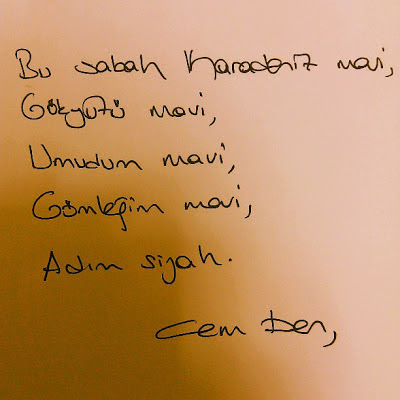 Bu sabah Karadeniz mavi,
Gökyüzü mavi,
Umudum mavi,
Gömleğim mavi,
Adım siyah.
Cem Der,